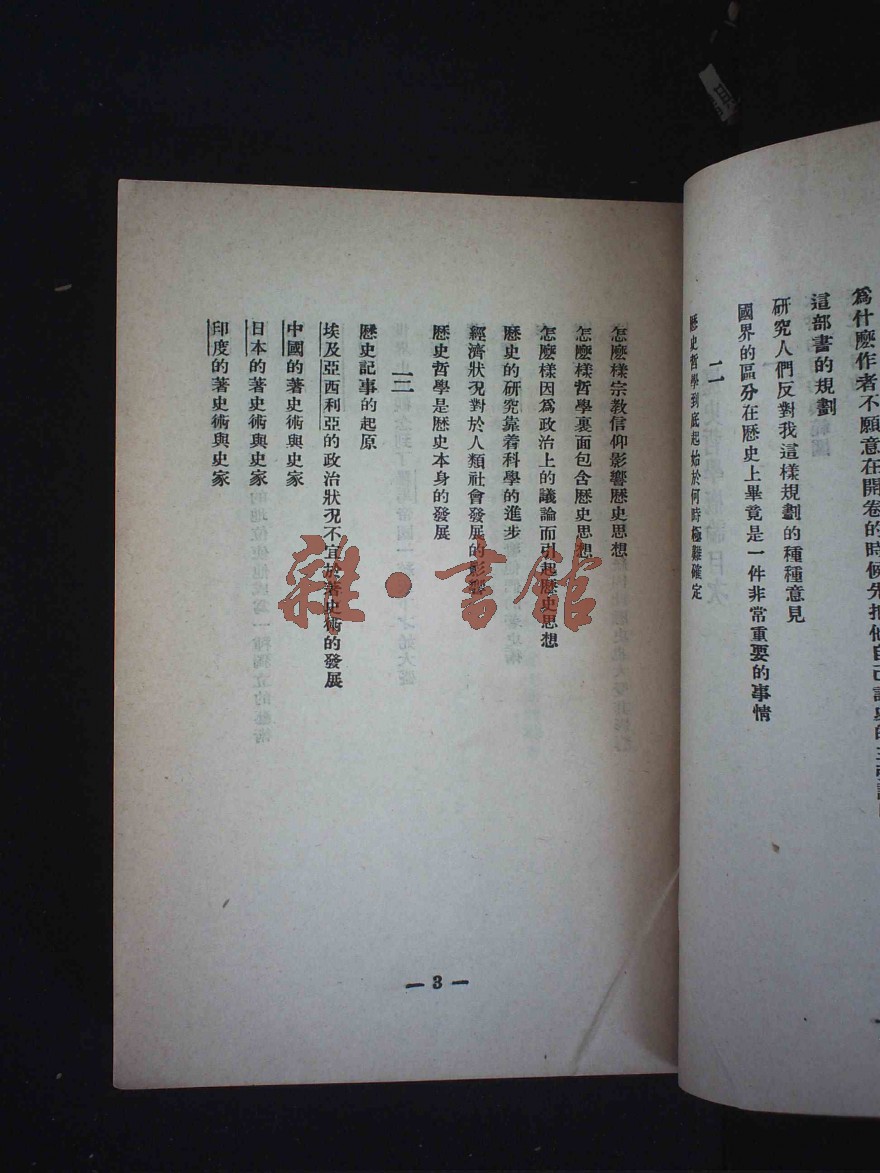 爲什麽作者不願意在開卷的時候先把他自己
這部書的規劃
研究人們反對我這樣規劃的種種意見
國界的區分在歷史上畢竟是一件非常重要的事情
二
歷史哲學到底起始於何時極難確定
怎麽樣宗教信仰影響歷史思想
怎麽樣哲學裏面包含歷史思想
怎麽樣因爲政治上的議論而引起歷史思想
歷史的研究靠着科學的進步
經濟狀況對於人類社會發展的影響
歷史哲學是歷史本身的發展
三
歷史記事的起原
埃及亞西利亞的政治狀況不宜於著史術的發展
中國的著史術與史家
日本的著史術與史家
印度的著史術與史家
— 3 —
雜·書館